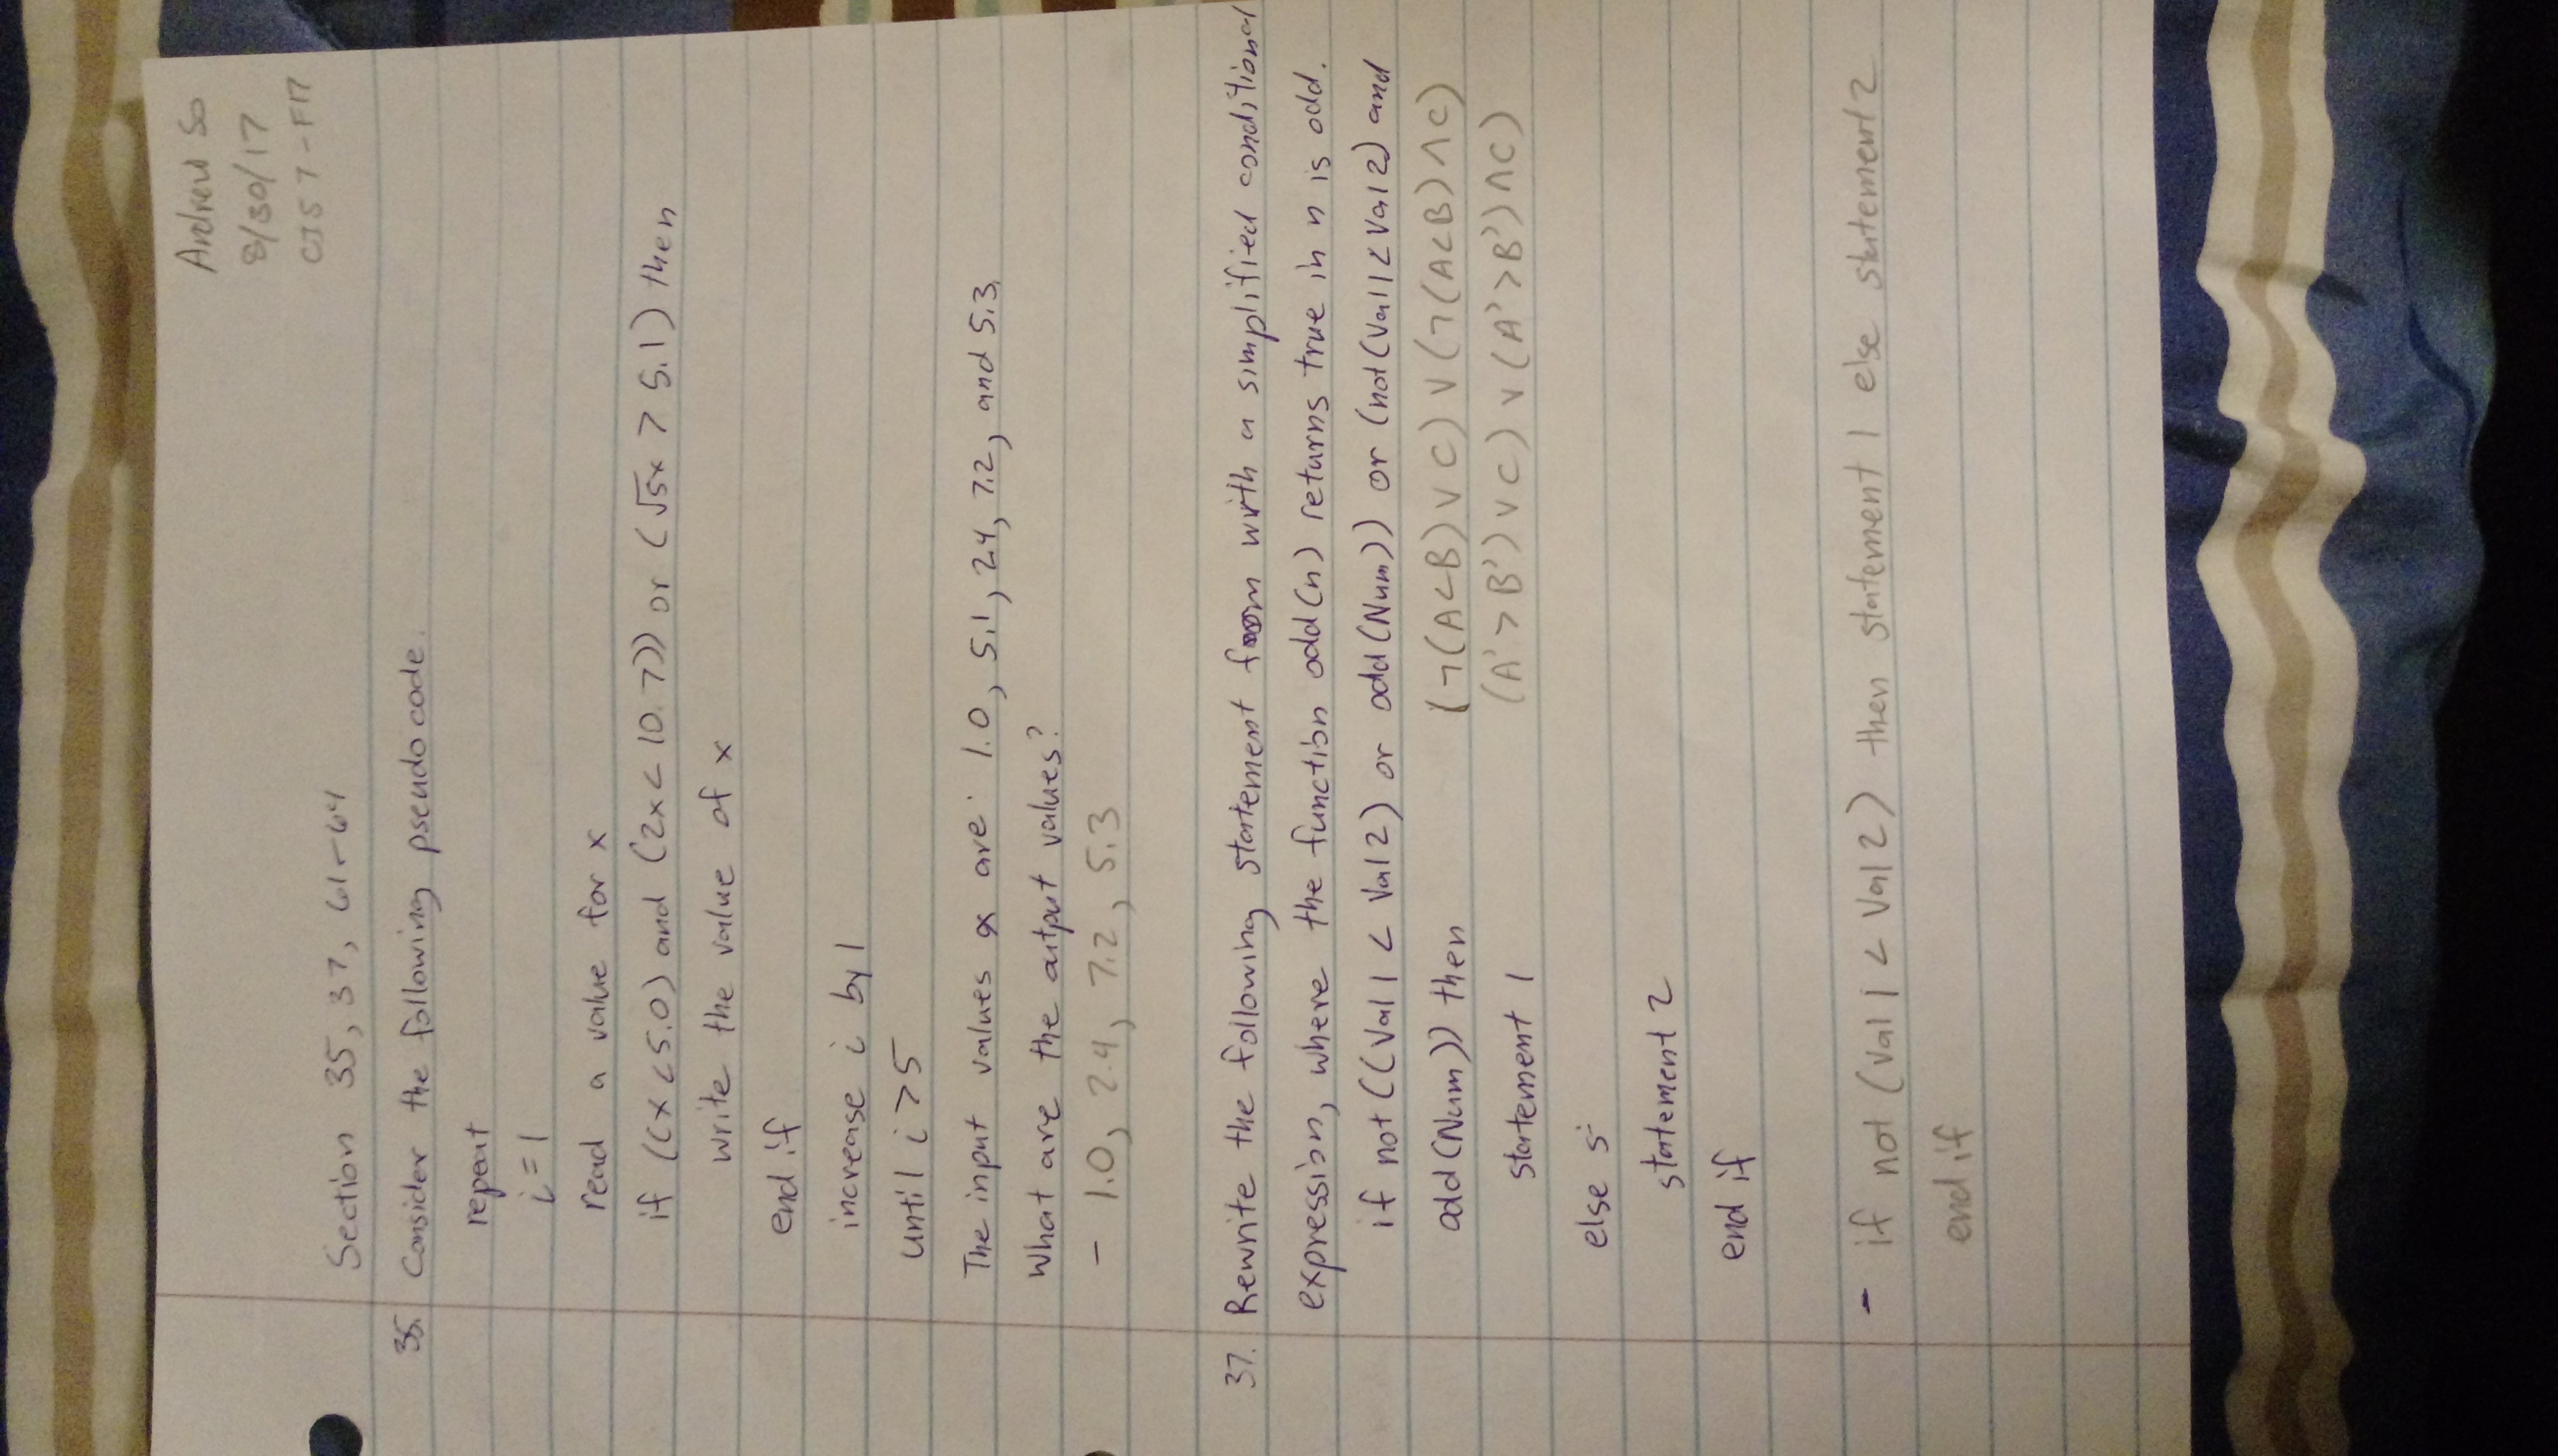 Andrew So
8/30/17
CIS 7 - F17
Section 35, 37, 61-64
35. Consider the following pseudo code.
repeat
i = 1
read a value for x
if ((x < 5.0) and (2x < 10.7)) or (√5x > 5.1) then
write the value of x
end if
increase i by 1
until i > 5
The input values x are: 1.0, 5.1, 2.4, 7.2, and 5.3.
What are the output values?
- 1.0, 2.4, 7.2, 5.3
37. Rewrite the following statement form with a simplified conditional
expression, where the function odd(n) returns true in n is odd.
if not ((Val1 < Val2) or odd(Num)) or (not(Val1 < Val2) and
odd(Num)) then (¬(A<B) ∨ C) ∨ (¬(A<B) ∧ C)
statement 1 (A' > B') ∨ C) ∨ (A' > B') ∧ C)
else s
statement 2
end if
- if not (Val1 < Val2) then statement 1 else statement 2
end if